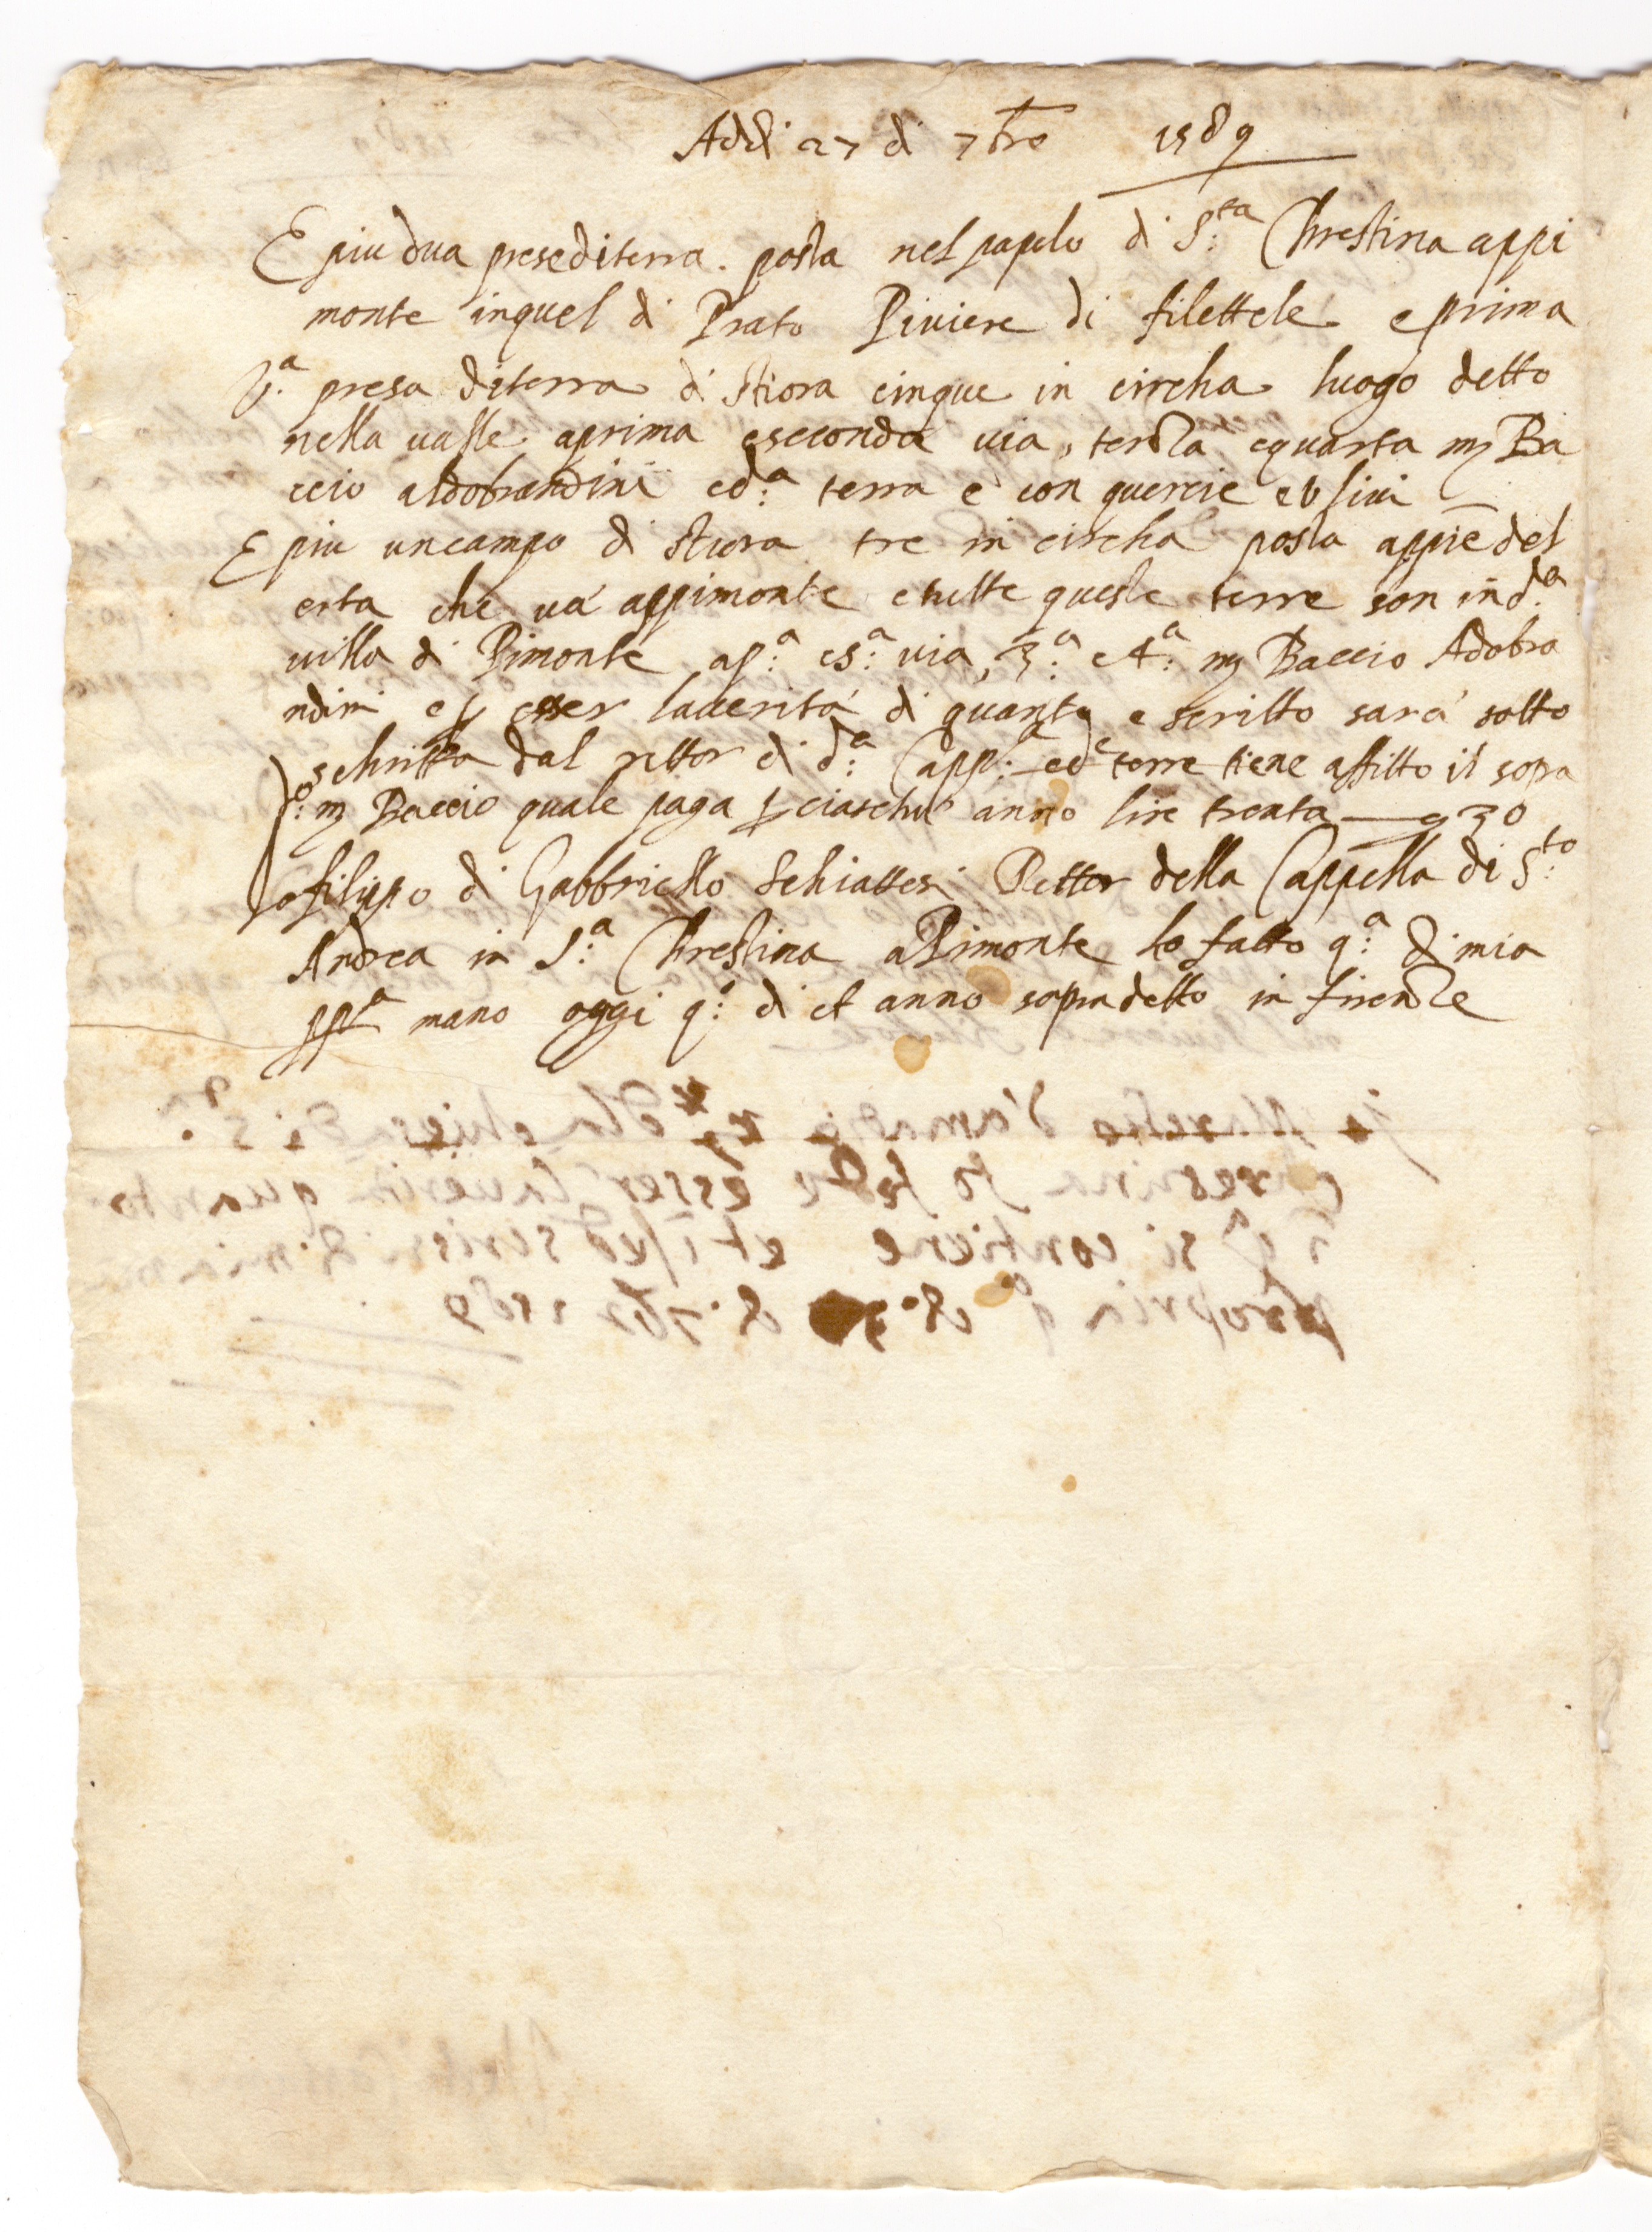 Addi 27 di 7bre 1589
E piu dua prese di terra. posta nel popolo di S:ta Chrestina appi
monte in quel di Prato Piviere di filettele e prima
p:a presa di terra di stiora cinque in circha luogo detto
nella valle aprima e seconda via, terza e quarta m Ba
ccio aldobrandini e d:a terra e con quercie e ulivi
E piu un campo di stiora tre in circha posta appie del
erta che va appimonte e tutte queste terre son in d:a
villa di Pimonte ap:a e s:a via, 3:a e 4:a m Baccio Adobra
ndini e p esser la verità di quanto e scritto sarà sotto
schritta dal rettor di d:a Capp:a e de terre tiene affitto il sopra
d:o m Baccio quale paga p ciaschun anno lire trenta — 30
Io filippo di Gabbriello Schiattesi Rettor della Cappella di S:to
Andrea in S:a Chrestina a Pimonte ho fatto q:a di mia
pp:a mano oggi q:o di et anno sopradetto in firenze